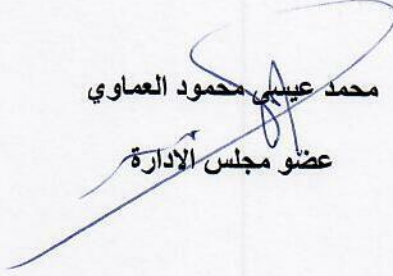 محمد عيسى محمود العماوي
عضو مجلس الادارة